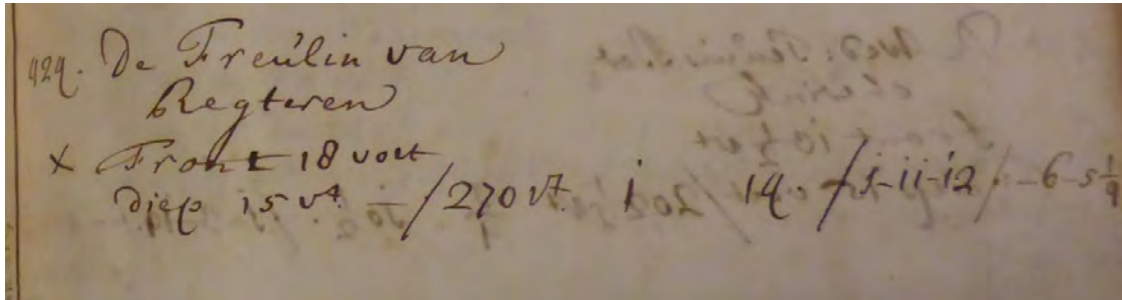 424. De Freülin van
Regteren
x Front 18 voet
diep 15 vt. — / 270 vt. 1 14 / 5-11-12 / -6-5 1/9